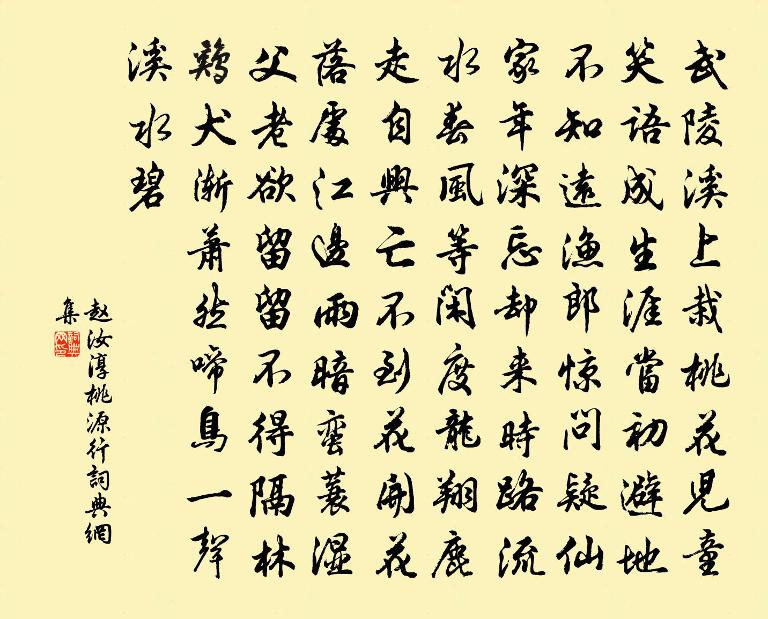 武陵溪上栽桃花児童
笑語成生涯當初避地
不知遠漁郎惊問疑仙
家年深忘却来時路流
水春風等閑度龍翔鹿
走自興亡不到花開花
落處江邊雨暗蛮蓑湿
父老欲留留不得隔林
鶏犬渐萧然啼鳥一聲
溪水碧
赵汝淳桃源行詞典網
集